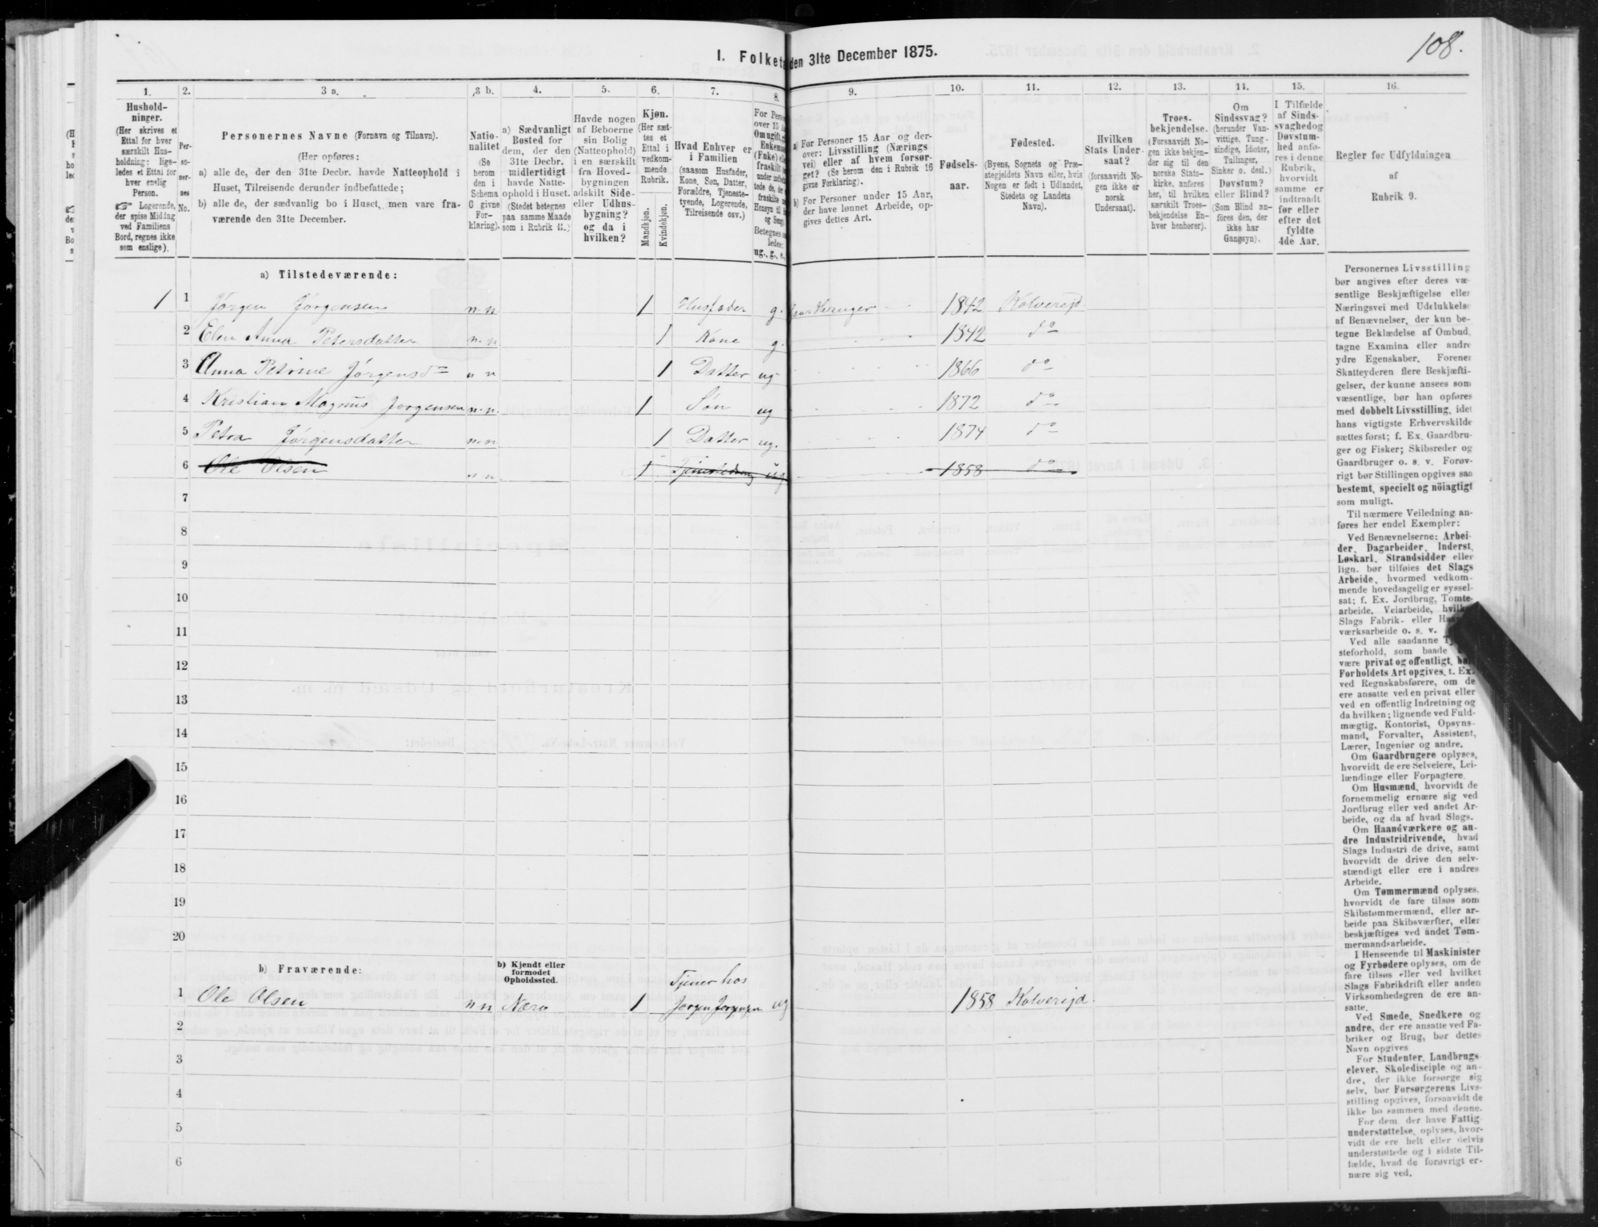 108.
I. Folket
den 31te December 1875.
1.
2.
3 a.
3 b.
4.
5.
6.
7.
8.
9.
10.
11.
12.
13.
14.
15.
16.
Hushold-
ninger.
(Her skrives et
Ettal for hver
særskilt Hus-
holdning; lige-
ledes et Ettal for
hver enslig
Person.
☞ Logerende,
der spise Middag
ved Familiens
Bord, regnes ikke
som enslige).
Per-
so-
ner-
nes
No.
Personernes Navne (Fornavn og Tilnavn).
(Her opføres:
a) alle de, der den 31te Decbr. havde Natteophold i
Huset, Tilreisende derunder indbefattede;
b) alle de, der sædvanlig bo i Huset, men vare fra-
værende den 31te December.
Natio-
nalitet
(Se
herom
den i
Schema
O givne
For-
klaring).
a) Sædvanligt
Bosted for
dem, der den
31te Decbr.
midlertidigt
havde Natte-
ophold i Huset.
(Stedet betegnes
paa samme Maade
som i Rubrik 11.)
Havde nogen
af Beboerne
sin Bolig
(Natteophold)
i en særskilt
fra Hoved-
bygningen
adskilt Side-
eller Udhus-
bygning?
og da i
hvilken?
Kjøn.
(Her sæt-
tes et
Ettal i
vedkom-
mende
Rubrik.
Mandkjøn.
Kvindekjøn.
Hvad Enhver er
i Familien
(saasom Husfader,
Kone, Søn, Datter,
Forældre, Tjeneste-
tyende, Logerende,
Tilreisende osv.)
a) For Personer 15 Aar og der-
over: Livsstilling (Nærings
vei) eller af hvem forsør-
get? (Se herom den i Rubrik 16
givne Forklaring).
b) For Personer under 15 Aar,
der have lønnet Arbeide, op-
gives dettes Art.
Fødsels-
aar.
Fødested.
(Byens, Sognets og Præ-
stegjeldets Navn eller, hvis
Nogen er født i Udlandet,
Stedets og Landets
Navn).
Hvilken
Stats Under-
saat?
(forsaavidt No-
gen ikke er
norsk
Undersaat).
Troes-
bekjendelse.
(Forsaavidt No-
gen ikke bekjen-
der sig til den
norske Stats-
kirke, anføres
her, til hvilken
særskilt Troes-
bekjendelse En-
hver henhører).
Om
Sindssvag?
(herunder Van-
vittige, Tung-
sindige, Idioter,
Tullinger,
Sinker o. desl.)
Døvstum?
eller Blind?
(Som Blind an-
føres den, der
ikke har
Gangsyn).
I Tilfælde
af Sinds-
svaghedog
Døvstum-
hed anfø-
res i denne
Rubrik,
hvorvidt
samme er
indtraadt
før eller
efter det
fyldte
4de Aar.
Regler for Udfyldningen
af
Rubrik 9.
a) Tilstedeværende:
1 1 Jørgen Jørgensen n. n 1 Husfader g. Gaardbruger 1842 Kolvereid
2 Elen Anna Petersdatter n. n 1 Kone g. 1842 do
3 Anna Petrine Jørgensdtr n n 1 Datter ug 1866 do
4 Kristian Magnus Jørgensen n. n. 1 Søn ug 1872 do
5 Petra Jørgensdatter n n 1 Datter ug. 1874 do
6 Ole Olsen n n 1 ug 1858 do
7
8
9
10
11
12
13
14
15
16
17
18
19
20
b) Fraværende:
b) Kjendt eller
formodet
Opholdssted.
1 Ole Olsen n n Nærø 1 Tjener hos
Jørgen Jørgensen ug 1858 Kolvereid
2
3
4
5
6
Personernes Livsstilling
bør angives efter deres væ-
sentlige Beskjæftigelse eller
Næringsvei med Udelukkelse
af Benævnelser, der kun be-
tegne Beklædelse af Ombud,
tagne Examina eller andre
ydre Egenskaber. Forener
Skatteyderen flere Beskjæfti-
gelser, der kunne ansees som
væsentlige, bør han opføres
med dobbelt Livsstilling, idet
hans vigtigste Erhvervskilde
sættes først; f. Ex. Gaardbru-
ger og Fisker; Skibsreder og
Gaardbruger o. s. v. Forøv-
rigt bør Stillingen opgives saa
bestemt, specielt og nöiagtigt
som muligt.
Til nærmere Veiledning an-
føres her endel Exempler:
Ved Benævnelserne: Arbei-
der, Dagarbeider, Inderst,
Løskarl, Strandsidder eller
lign. bør tilføies det Slags
Arbeide, hvormed vedkom-
mende hovedsagelig er syssel-
sat; f. Ex. Jordbrug, Tomte-
arbeide, Veiarbeide, hvilket
Slags Fabrik- eller
værksarbeide o. s. v.
Ved alle saadanne
steforhold, som baade
være privat og offentligt,
Forholdets Art opgives, t. Ex.
ved Regnskabsførere, om de
ere ansatte ved en privat eller
ved en offentlig Indretning og
da hvilken; lignende ved Fuld-
mægtig, Kontorist, Opsyns-
mand, Forvalter, Assistent,
Lærer, Ingeniør og andre.
Om Gaardbrugere oplyses,
hvorvidt de ere Selveiere, Lei-
lændinge eller Forpagtere.
Om Husmænd, hvorvidt de
fornemmelig ernære sig ved
Jordbrug eller ved andet Ar-
beide, og da af hvad Slags.
Om Haandværkere og an-
dre Industridrivende, hvad
Slags Industri de drive, samt
hvorvidt de drive den selv-
stændigt eller ere i andres
Arbeide.
Om Tømmermænd oplyses,
hvorvidt de fare tilsøs som
Skibstømmermænd, eller ar-
beide paa Skibsværfter, eller
beskjæftiges ved andet Tøm-
mermandsarbeide.
I Henseende til Maskinister
og Fyrbødere oplyses, om de
fare tilsøs eller ved hvilket
Slags Fabrikdrift eller anden
Virksomhedsgren de ere an-
satte.
Ved Smede, Snedkere og
andre, der ere ansatte ved Fa-
briker og Brug, bør dettes
Navn opgives
For Studenter, Landbrugs-
elever, Skoledisciple og an-
dre, der ikke forsørge sig
selv, bør Forsørgerens Livs-
stilling opgives, forsaavidt de
ikke bo sammen med denne.
For dem, der have Fattig-
understøttelse, oplyses, hvor-
vidt de ere helt eller delvis
understøttede og i sidste Til-
fælde, hvad de forøvrigt er-
nære sig ved.